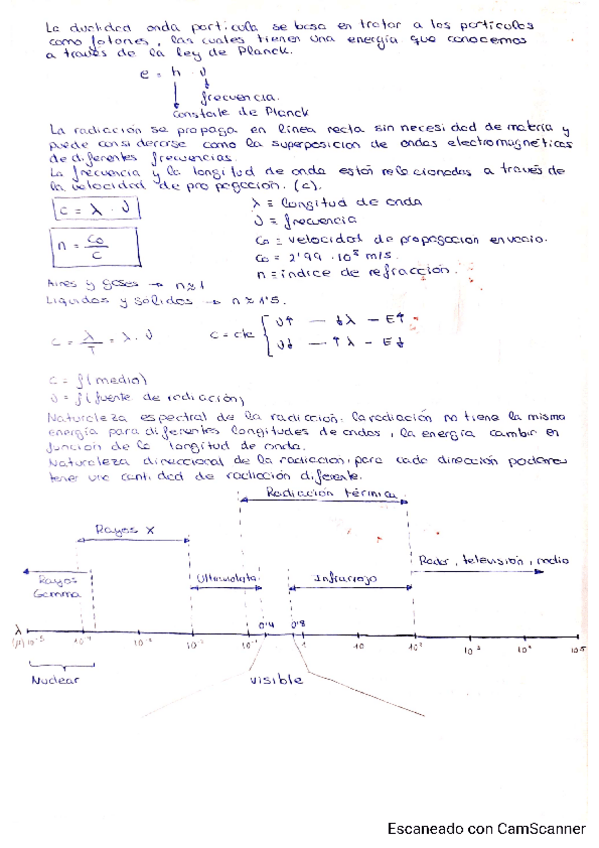 La dualidad onda partícula se basa en tratar a las partículas
como fotones, las cuales tienen una energía que conocemos
a través de la ley de Planck.
e = h · ν
frecuencia.
constate de Planck
La radiación se propaga en línea recta sin necesidad de matria y
puede considerarse como la superposición de ondas electromagnéticas
de diferentes frecuencias.
La frecuencia y la longitud de onda están relacionadas a través de
la velocidad de propagación. (c).
c = λ · ν
λ ≡ longitud de onda
ν = frecuencia
n = co/c
co = velocidad de propagación en vacío.
co = 2'99 · 10⁸ m/s.
n = índice de refracción.
Aires y gases → n ≈ 1
Líquidos y sólidos → n ≈ 1'5.
c = λ/T = λ · ν
c = cte { ν↑ — ↓λ — E↑
ν↓ — ↑λ — E↓
c = f(medio)
ν = f(fuente de radiación)
Naturaleza espectral de la radiación. la radiación no tiene la misma
energía para diferentes longitudes de ondas, la energía cambia en
función de la longitud de onda.
Naturaleza direccional de la radiación, para cada dirección podemos
tener una cantidad de radiación diferente.
Radiación térmica
Rayos X
Radar, televisión, radio
Rayos
Gamma
Ultravioleta
Infrarrojo
0'4 0'8
λ
10⁻⁵ 10⁻⁴ 10⁻³ 10⁻² 10⁻¹ 1 10 10² 10³ 10⁴ 10⁵
Nuclear
visible
Escaneado con CamScanner